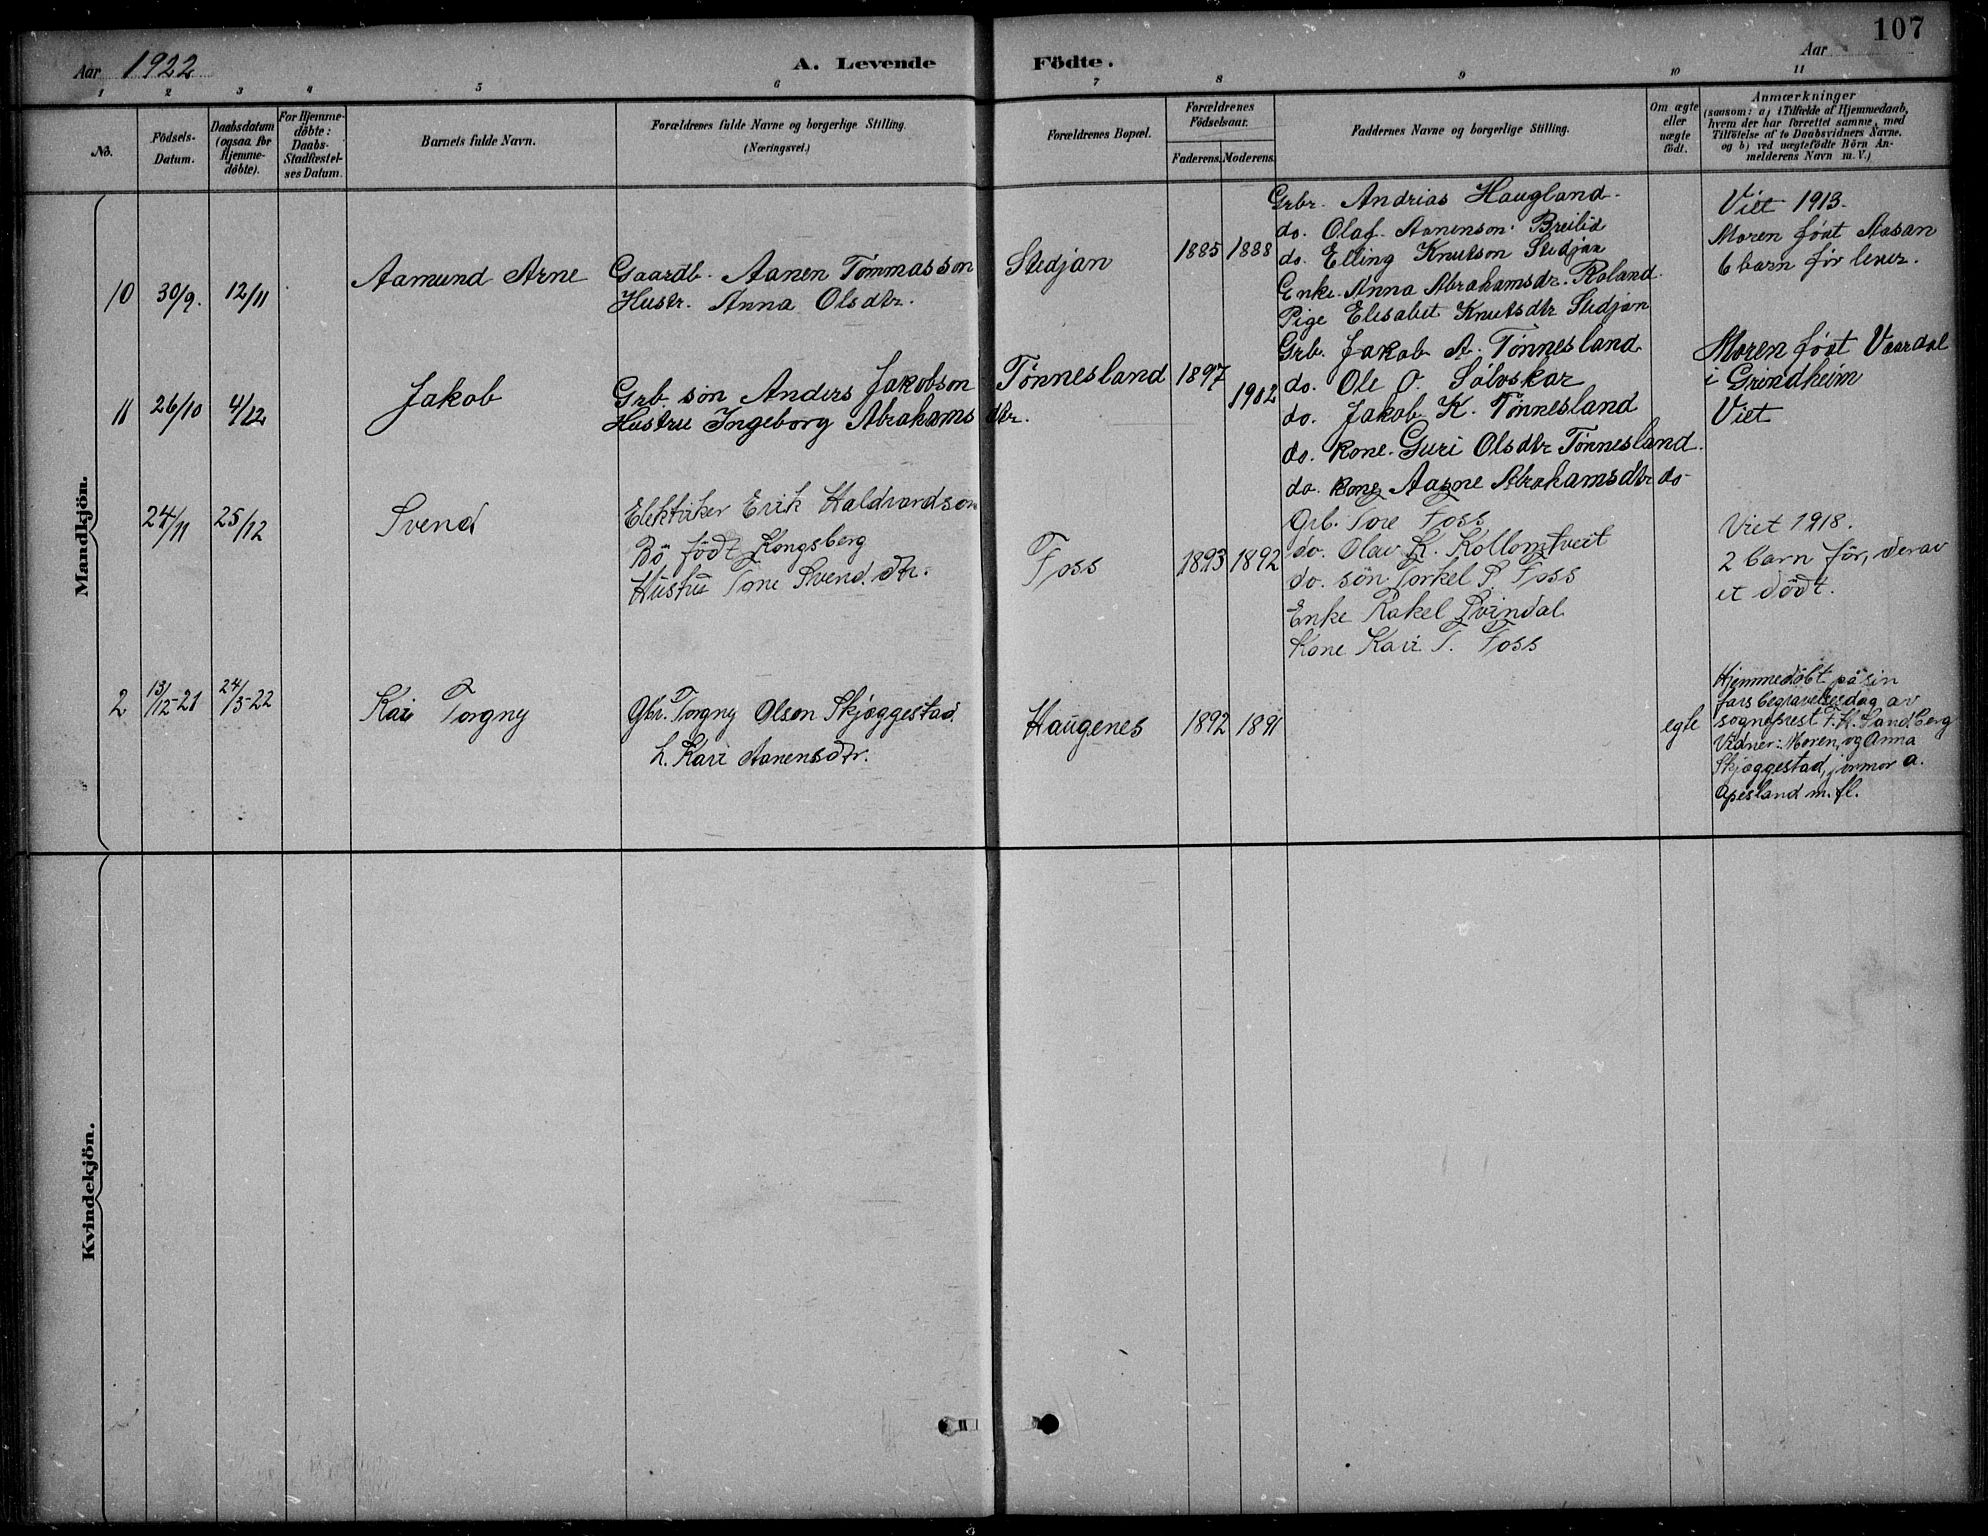 107
Aar 1922
A. Levende Födte.
Aar
1 2 3 4 5 6 7 8 9 10 11
No.
Födsels-Datum.
Daabsdatum (ogsaa for Hjemme-døbte).
For Hjemme-døbte: Daabs-Stadfæstel-ses Datum.
Barnets fulde Navn.
Forældrenes fulde Navne og borgerlige Stilling.
(Næringsvei.)
Forældrenes Bopæl.
Forældrenes Födselsaar.
Faderens. Moderens.
Faddernes Navne og borgerlige Stilling.
Om ægte eller uægte födt.
Anmærkninger
(saasom: a) i Tilfælde af Hjemmedaab,
hvem der har forrettet samme, med
Tilföielse af to Daabsvidners Navne.
og b) ved uægtefödte Börn An-
melderens Navn m. V.)
Mandkjön.
10 30/9. 12/11 Aamund Arne
Gaardb. Aanen Tommasson
Hustr. Anna Olsdtr.
Stedjan 1885 1888
Grbr. Andrias Haugland
do. Olaf Aanenson Breilid
do. Elling Knutson Stedjan
Enke. Anna Abrahamsdr. Roland.
Pige Elisabet Knutsdtr Stedjan
Viet 1913.
Moren født Aasan
6 barn før lever.
11 26/10 4/12 Jakob
Grb søn Anders Jakobson
Hustru Ingeborg Abrahams dtr.
Tønnesland 1897 1902
Grb. Jakob A. Tønnesland
do. Ole O. Sølvskar
do. Jakob K. Tønnesland
do. kone. Guri Olsdtr Tønnesland.
do. kone Aagne Abrahamsdtr do
Moren født Vaardal
i Grindheim
Viet
24/11 25/12 Svend
Elektriker Erik Haldvardson
Bö födt Kongsberg
Hustru Tone Svend.dtr.
Foss 1893 1892
Grb. Tore Foss
do. Olav K. Kollomtveit
do. sön Torkel S Foss
Enke Rakel Kvindal
Kone Kari T. Foss
Viet 1918.
2 barn för, derav
et dödt.
2 13/12-21 24/3-22 Kai Torgny
Gbr. Torgny Olsen Skjæggestad
h. Kari Aanensdtr.
Haugenes 1892 1891
egte
Hjemmedöbt på sin
fars begravelsesdag av
sogneprest F.K. Sandberg
Vidner: Moren, og Anna
Skjæggestad, jormor a.
Apesland m. fl.
Kvindekjön.